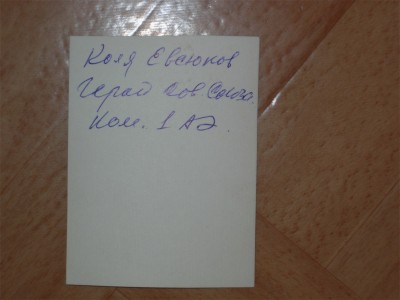 Коля Евсюков
Герой Сов. Союза.
Ком. 1 АЭ.